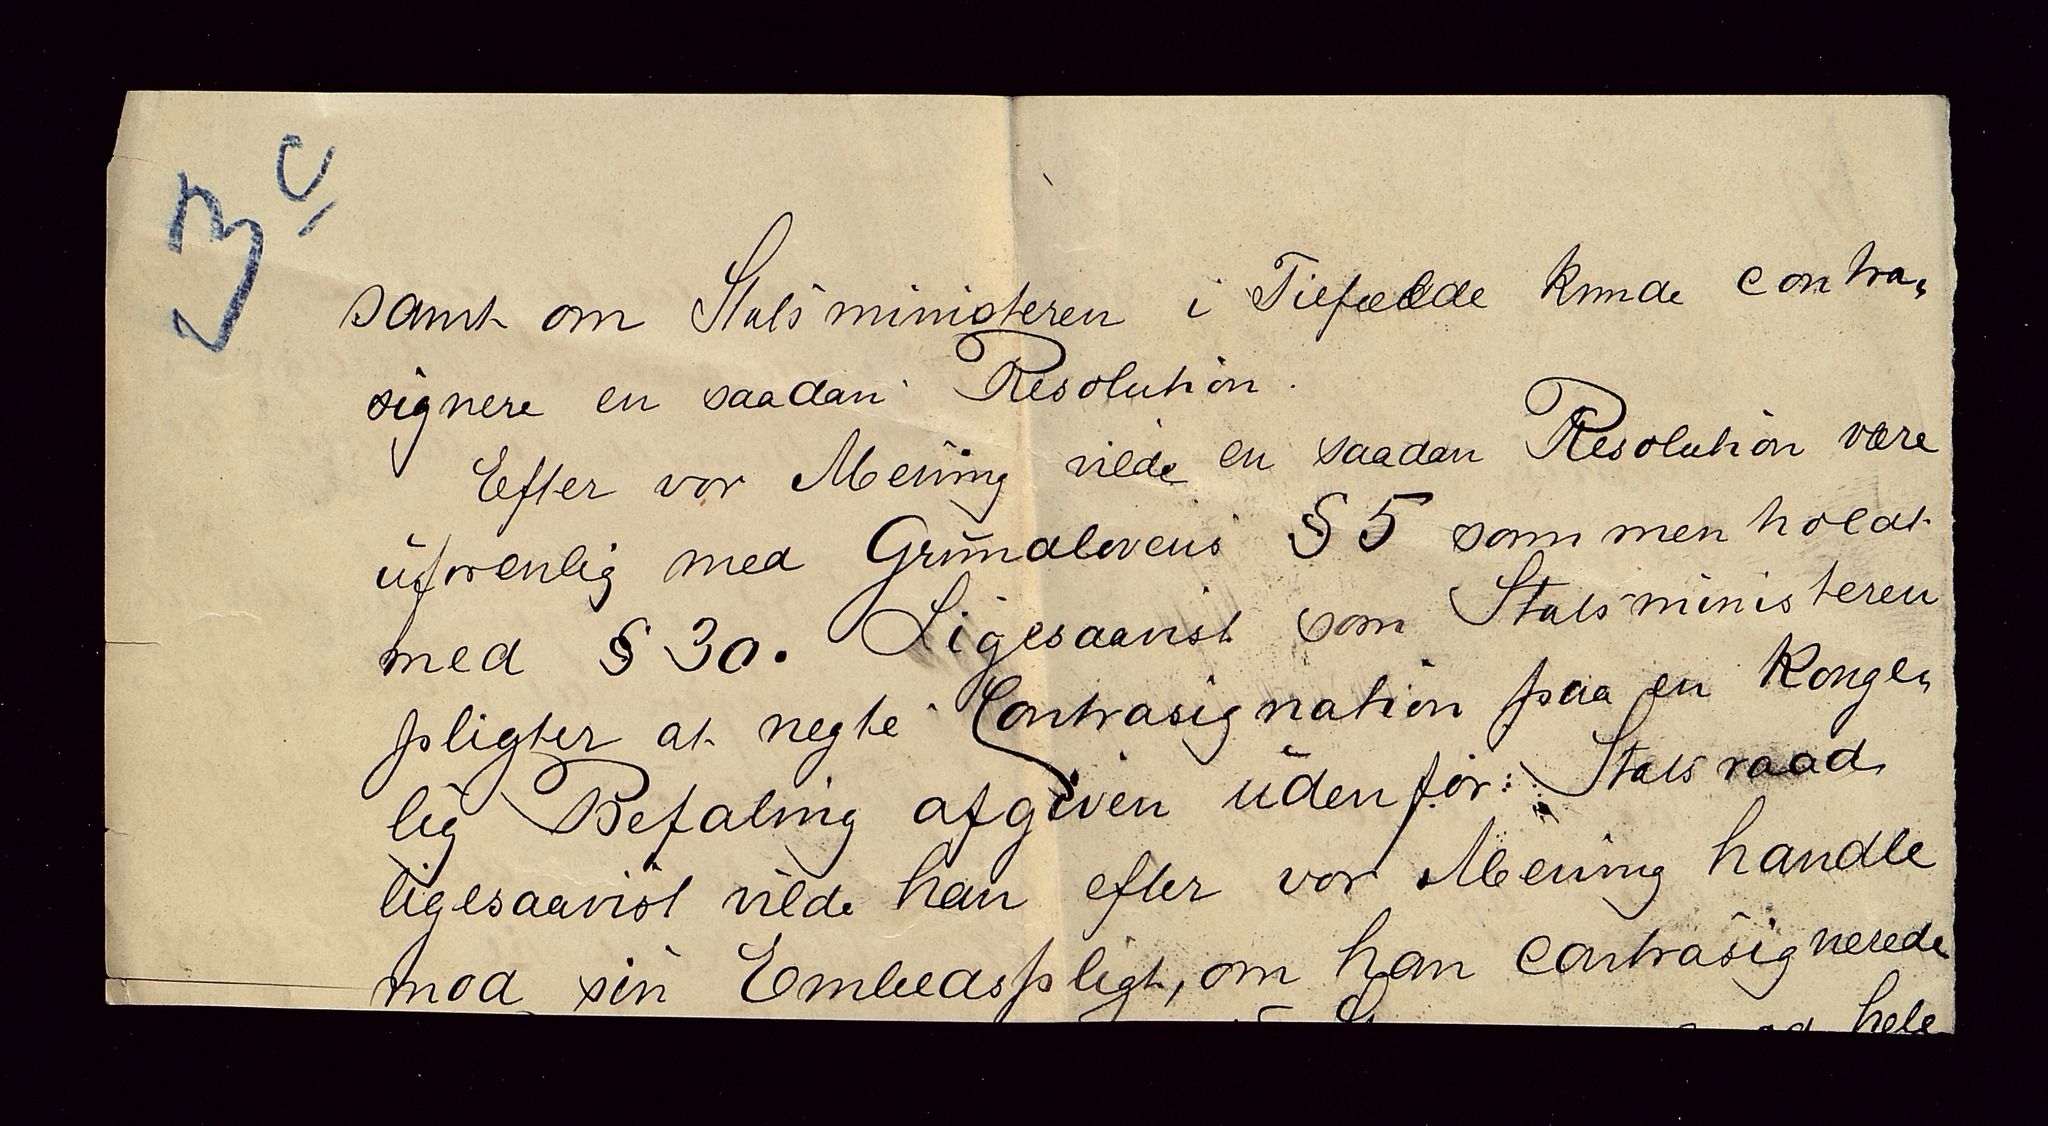 3c
samt om Statsministeren i Tilfælde kunde contra-
signere en saadan Resolution.
Efter vor Mening vilde en saadan Resolution være
uforenlig med Grundlovens § 5 sammenholdt
med § 30. Ligesaavist som Statsministeren
pligter at negte Contrasignation paa en Konge-
lig Befaling afgiven udenfor Statsraad
ligesaavist vilde han efter vor Mening handle
mod sin Embedspligt, om han contrasignerede
hele